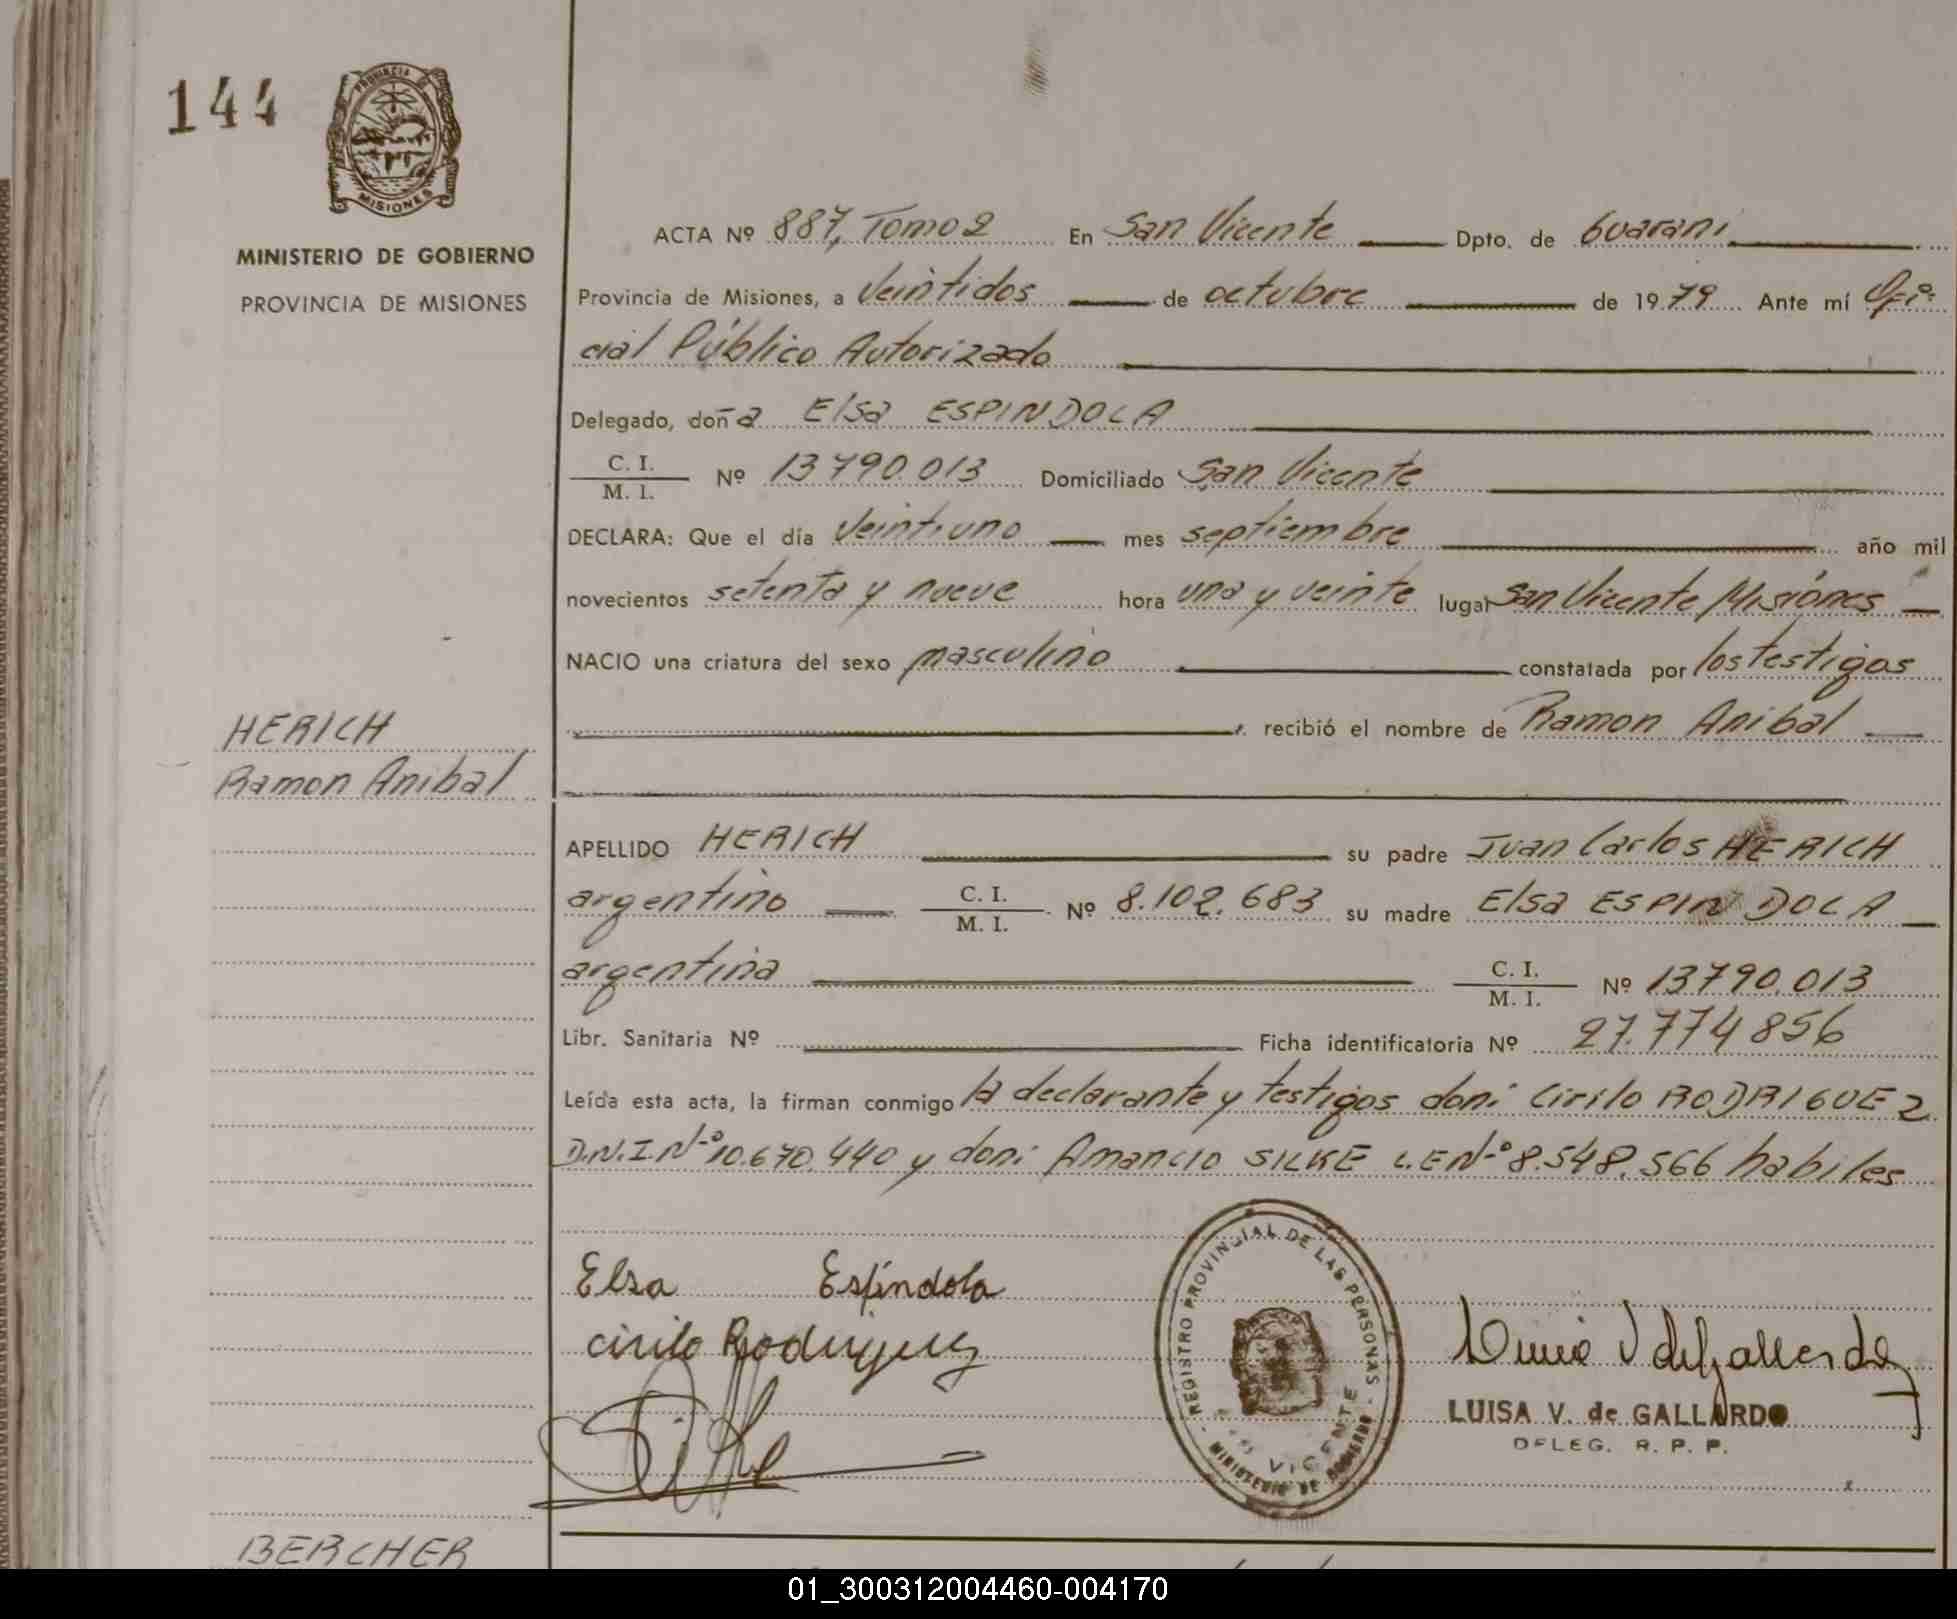 144
PROVINCIA
MISIONES
MINISTERIO DE GOBIERNO
PROVINCIA DE MISIONES
ACTA Nº 887, Tomo 2 En San Vicente Dpto. de Guarani
Provincia de Misiones, a Veintidos de octubre de 1979 Ante mí Ofi=
cial Público Autorizado
Delegado, doña Elsa ESPINDOLA
C. I.
M. I. Nº 13790.013 Domiciliado San Vicente
DECLARA: Que el día Veintiuno mes septiembre año mil
novecientos setenta y nueve hora una y veinte lugar San Vicente Misiones
NACIO una criatura del sexo masculino constatada por los testigos
, recibió el nombre de Ramon Anibal
HERICH
Ramon Anibal
APELLIDO HERICH su padre Juan Carlos HERICH
argentino C. I. M. I. Nº 8.102.683 su madre Elsa ESPINDOLA
argentina C. I. M. I. Nº 13790.013
Libr. Sanitaria Nº Ficha identificatoria Nº 27.774856
Leída esta acta, la firman conmigo la declarante y testigos don: Cirilo RODRIGUEZ
D.N.I Nº 10.670.440 y don: Amancio SILKE L.E Nº 8.548.566 habiles
Elsa Espíndola
Cirilo Rodriguez
REGISTRO PROVINCIAL DE LAS PERSONAS
VICENTE
MINISTERIO DE GOBIERNO
LUISA V. de GALLARDO
DELEG. R. P. P.
BERCHER
01_300312004460-004170